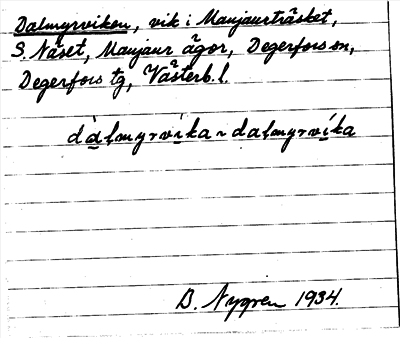 Dalmyrviken, vik i Manjaurträsket,
S. Näset, Manjaur ägor, Degerfors sn,
Degerfors tg, Västerb. l.
dàlmyrvíka ~ dalmyrvíka
B. Nygren 1934.